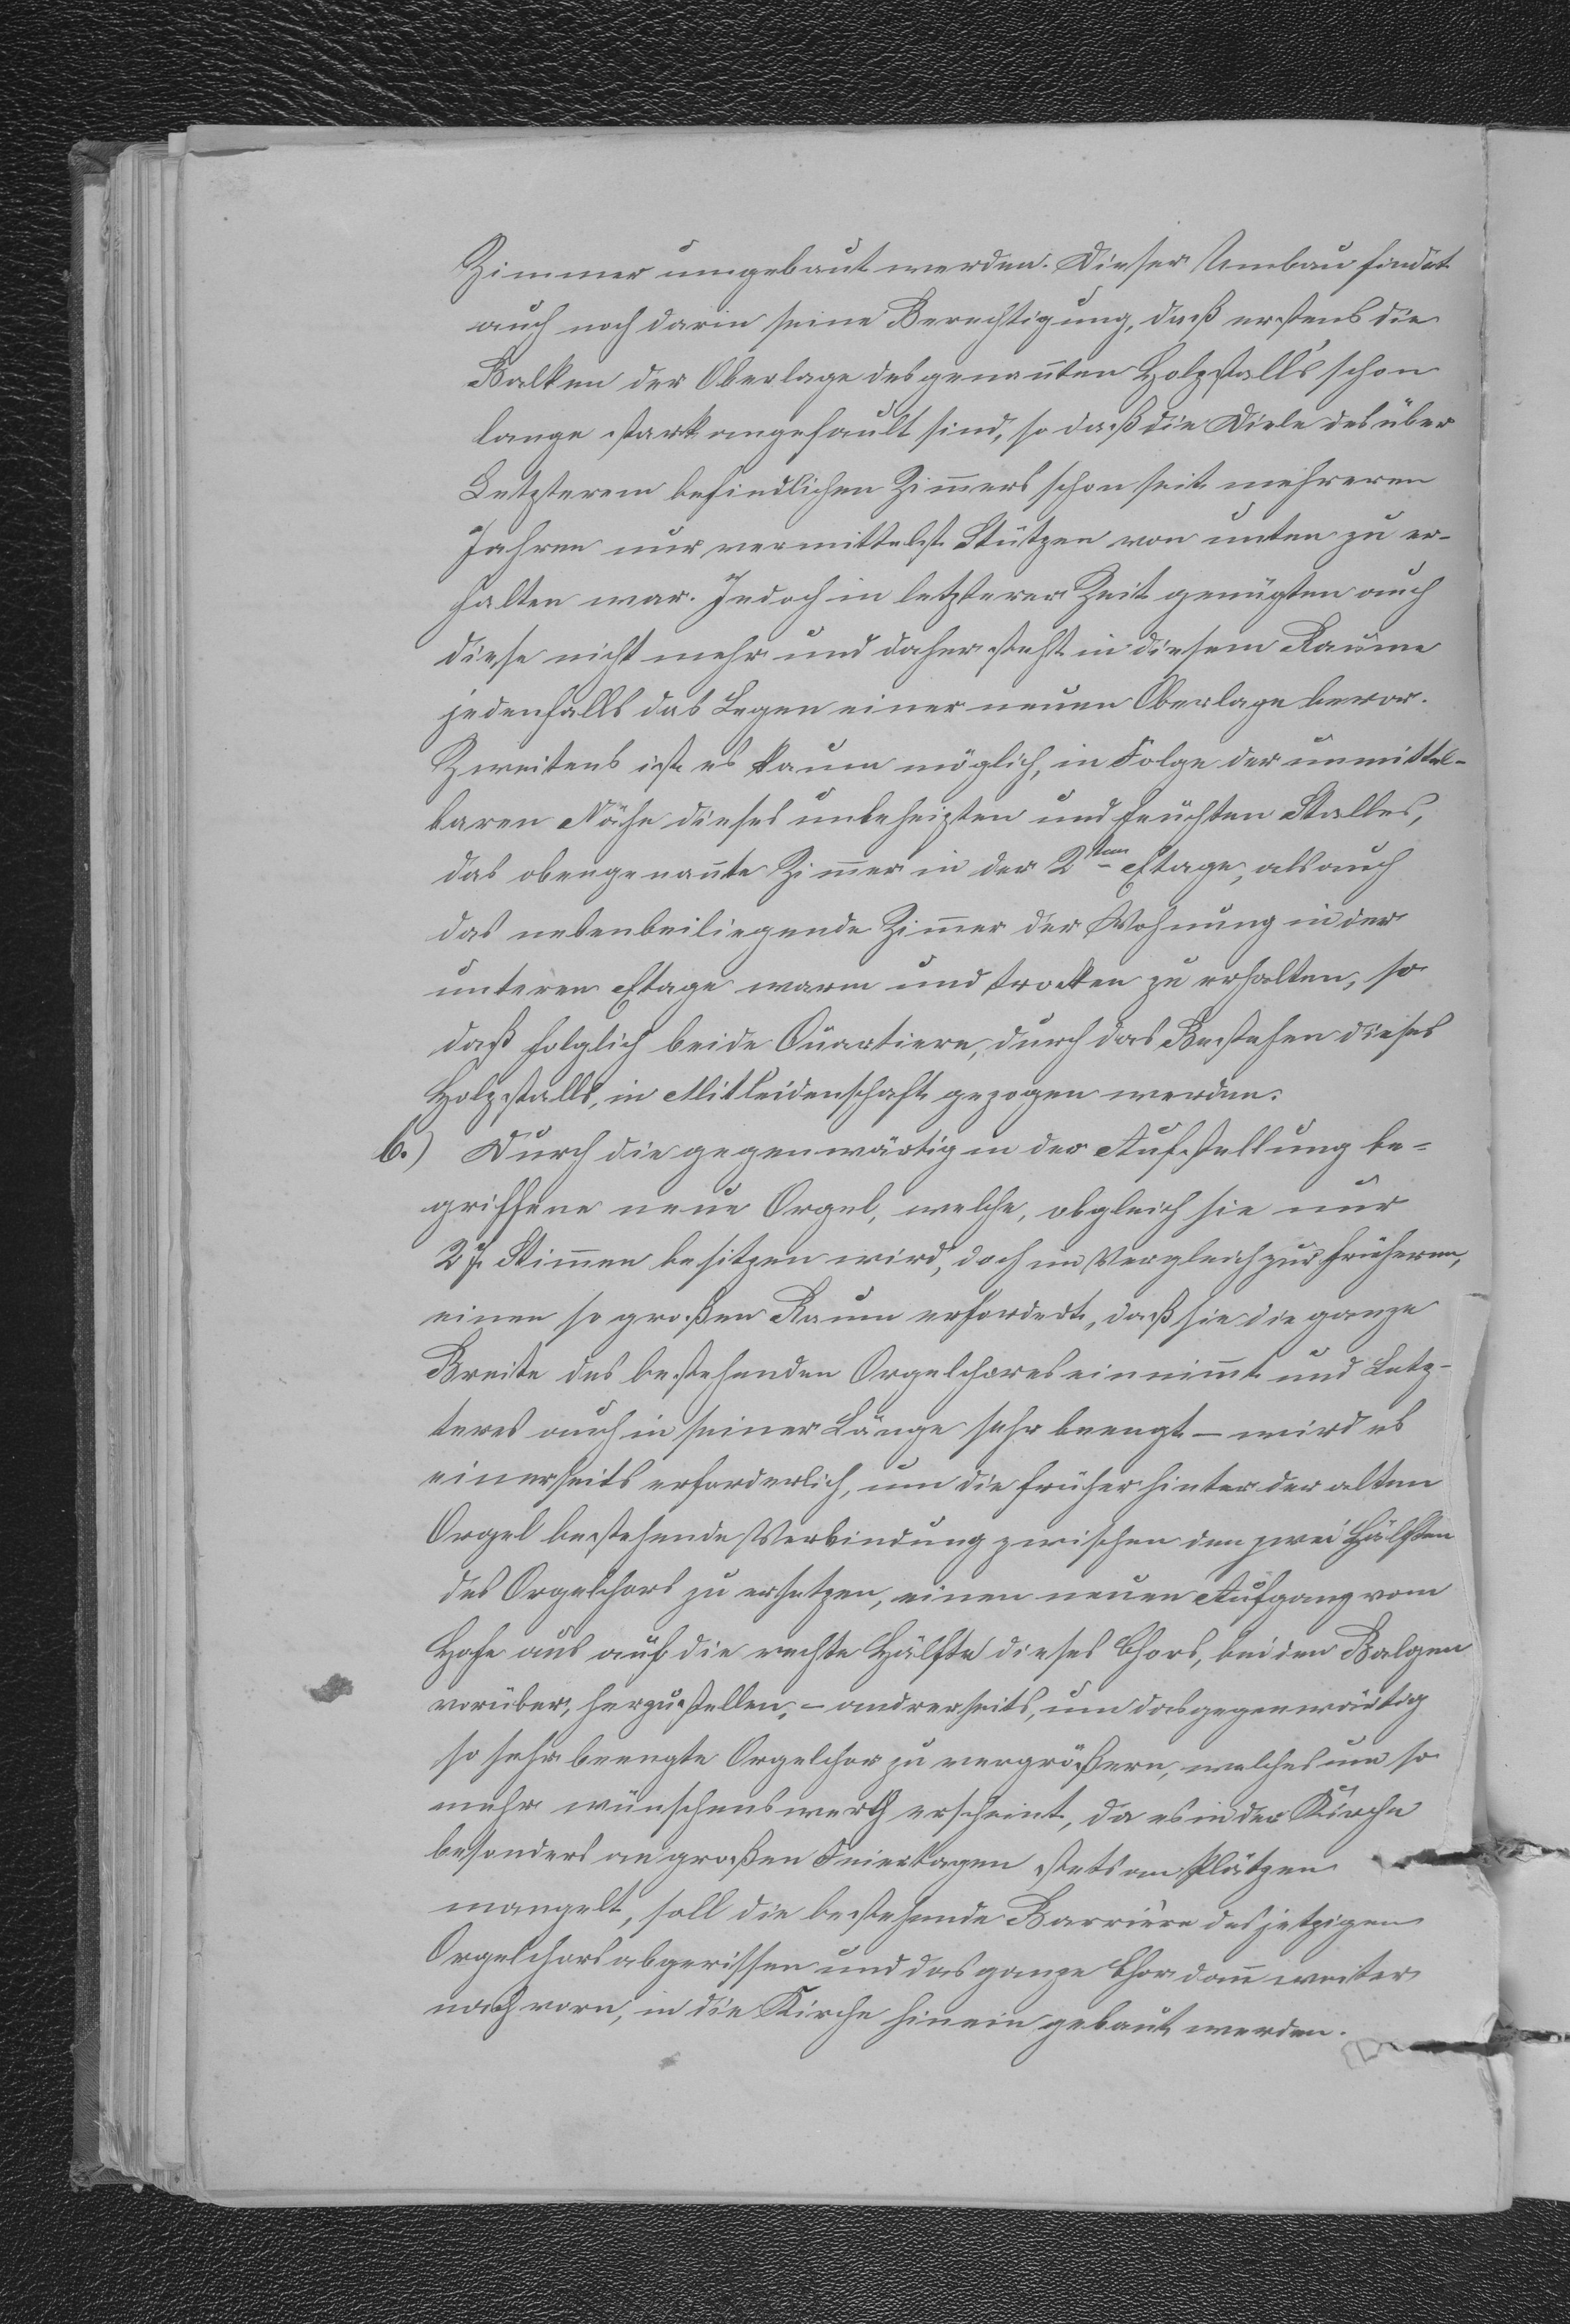 Zimmer umgebaut werden. Dieser Umbau findet
auch noch darin seine Berechtigung, daß erstens die
Balken der Oberlage des genan̅ten Holzstalls schon
lange stark angefault sind, so daß die Diele des über
Letzterem befindlichen Zim̅ers schon seit mehreren
Jahren nur vermittelst Stützen von unten zu er-
halten war. Jedoch in letzterer Zeit genügten auch
diese nicht mehr und daher steht in diesem Raume
jedenfalls das Legen einer neuen Oberlage bevor.
Zweitens ist es kaum möglich, in Folge der unmittel-
baren Nähe dieses unbeheizten und feuchten Stalles,
das obengenan̅te Zim̅er in der 2ten Etage, als auch
das nebenbeiliegende Zim̅er der Wohnung in der
unteren Etage warm und trocken zu erhalten, so
daß folglich beide Quartiere, durch das Bestehen dieses
Holzstalls, in Mitleidenschaft gezogen werden.
6.) Durch die gegenwärtig in der Aufstellung be-
griffene neue Orgel, welche, obgleich sie nur
27 Stim̅en besitzen wird, doch im Vergleich zur früheren,
einen so großen Raum erfordert, daß sie die ganze
Breite des bestehenden Orgelchores einnim̅t und Letz-
teres auch in seiner Länge sehr beengt – wird es
einerseits erforderlich, um die früher hinter der alten
Orgel bestehende Verbindung zwischen den zwei Hälften
des Orgelchors zu ersetzen, einen neuen Aufgang vom
Hofe aus auf die rechte Hälfte dieses Chors, bei den Balgen
vorüber, herzustellen, – andrerseits, um das gegenwärtig
so sehr beengte Orgelchor zu vergrößern, welches um so
mehr wünschenswerth erscheint, da es in der Kirche
besonders an großen Feiertagen stets an Plätzen
mangelt, soll die bestehende Barrière des jetzigen
Orgelchors abgerissen und das ganze Chor dan̅ weiter
nach vorn, in die Kirche hinein gebaut werden.